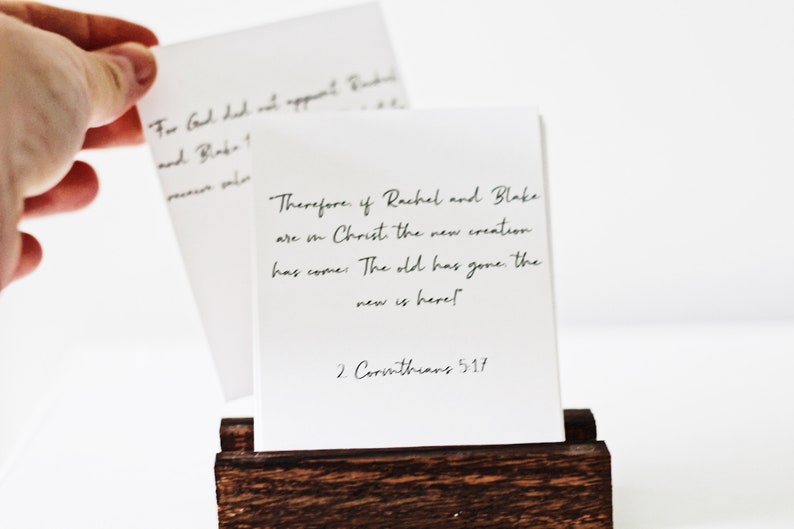 "For God did not appoint Rachel
and Blake
receive
"Therefore, if Rachel and Blake
are in Christ, the new creation
has come: The old has gone, the
new is here!"
2 Corinthians 5:17